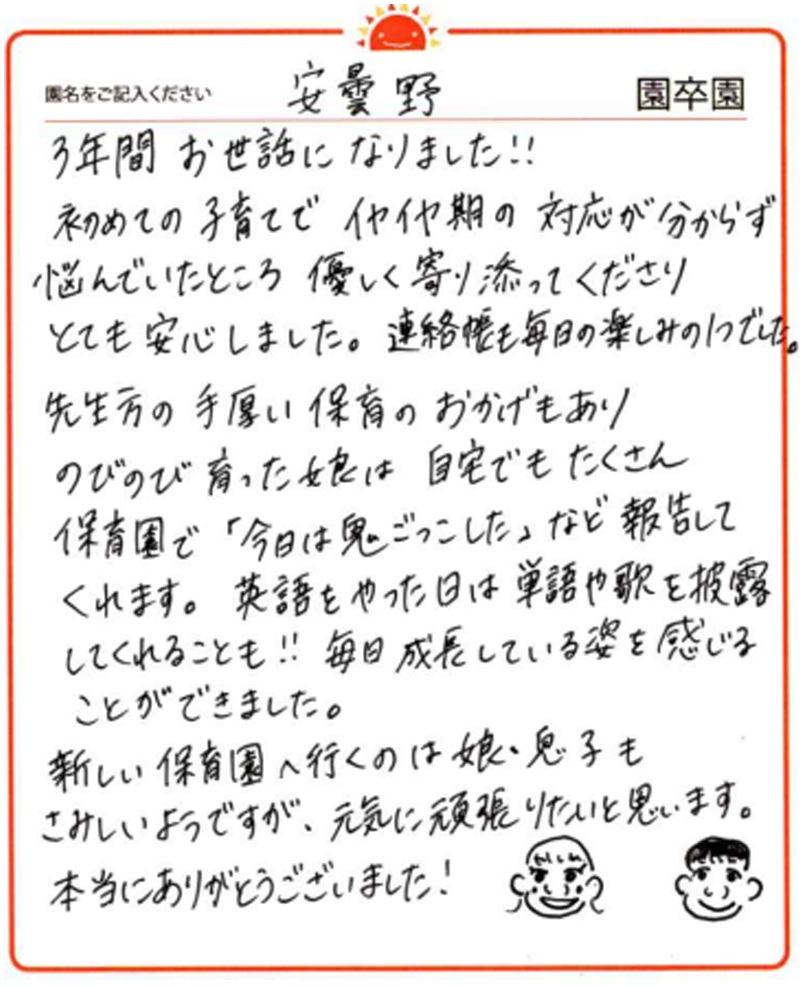 園名をご記入ください 安曇野 園卒園
3年間 お世話に なりました!!
初めての 子育てで イヤイヤ期の 対応が 分からず
悩んでいたところ 優しく 寄り添ってくださり
とても 安心しました。連絡帳も毎日の楽しみの1つでした。
先生方の 手厚い 保育の おかげもあり
のびのび 育った 娘は 自宅でも たくさん
保育園で 「今日は鬼ごっこした」など 報告して
くれます。 英語を やった日は 単語や歌を披露
してくれることも!! 毎日 成長している姿を 感じる
ことができました。
新しい 保育園へ行くのは 娘・息子も
さみしいようですが、元気に頑張りたいと思います。
本当にありがとうございました!